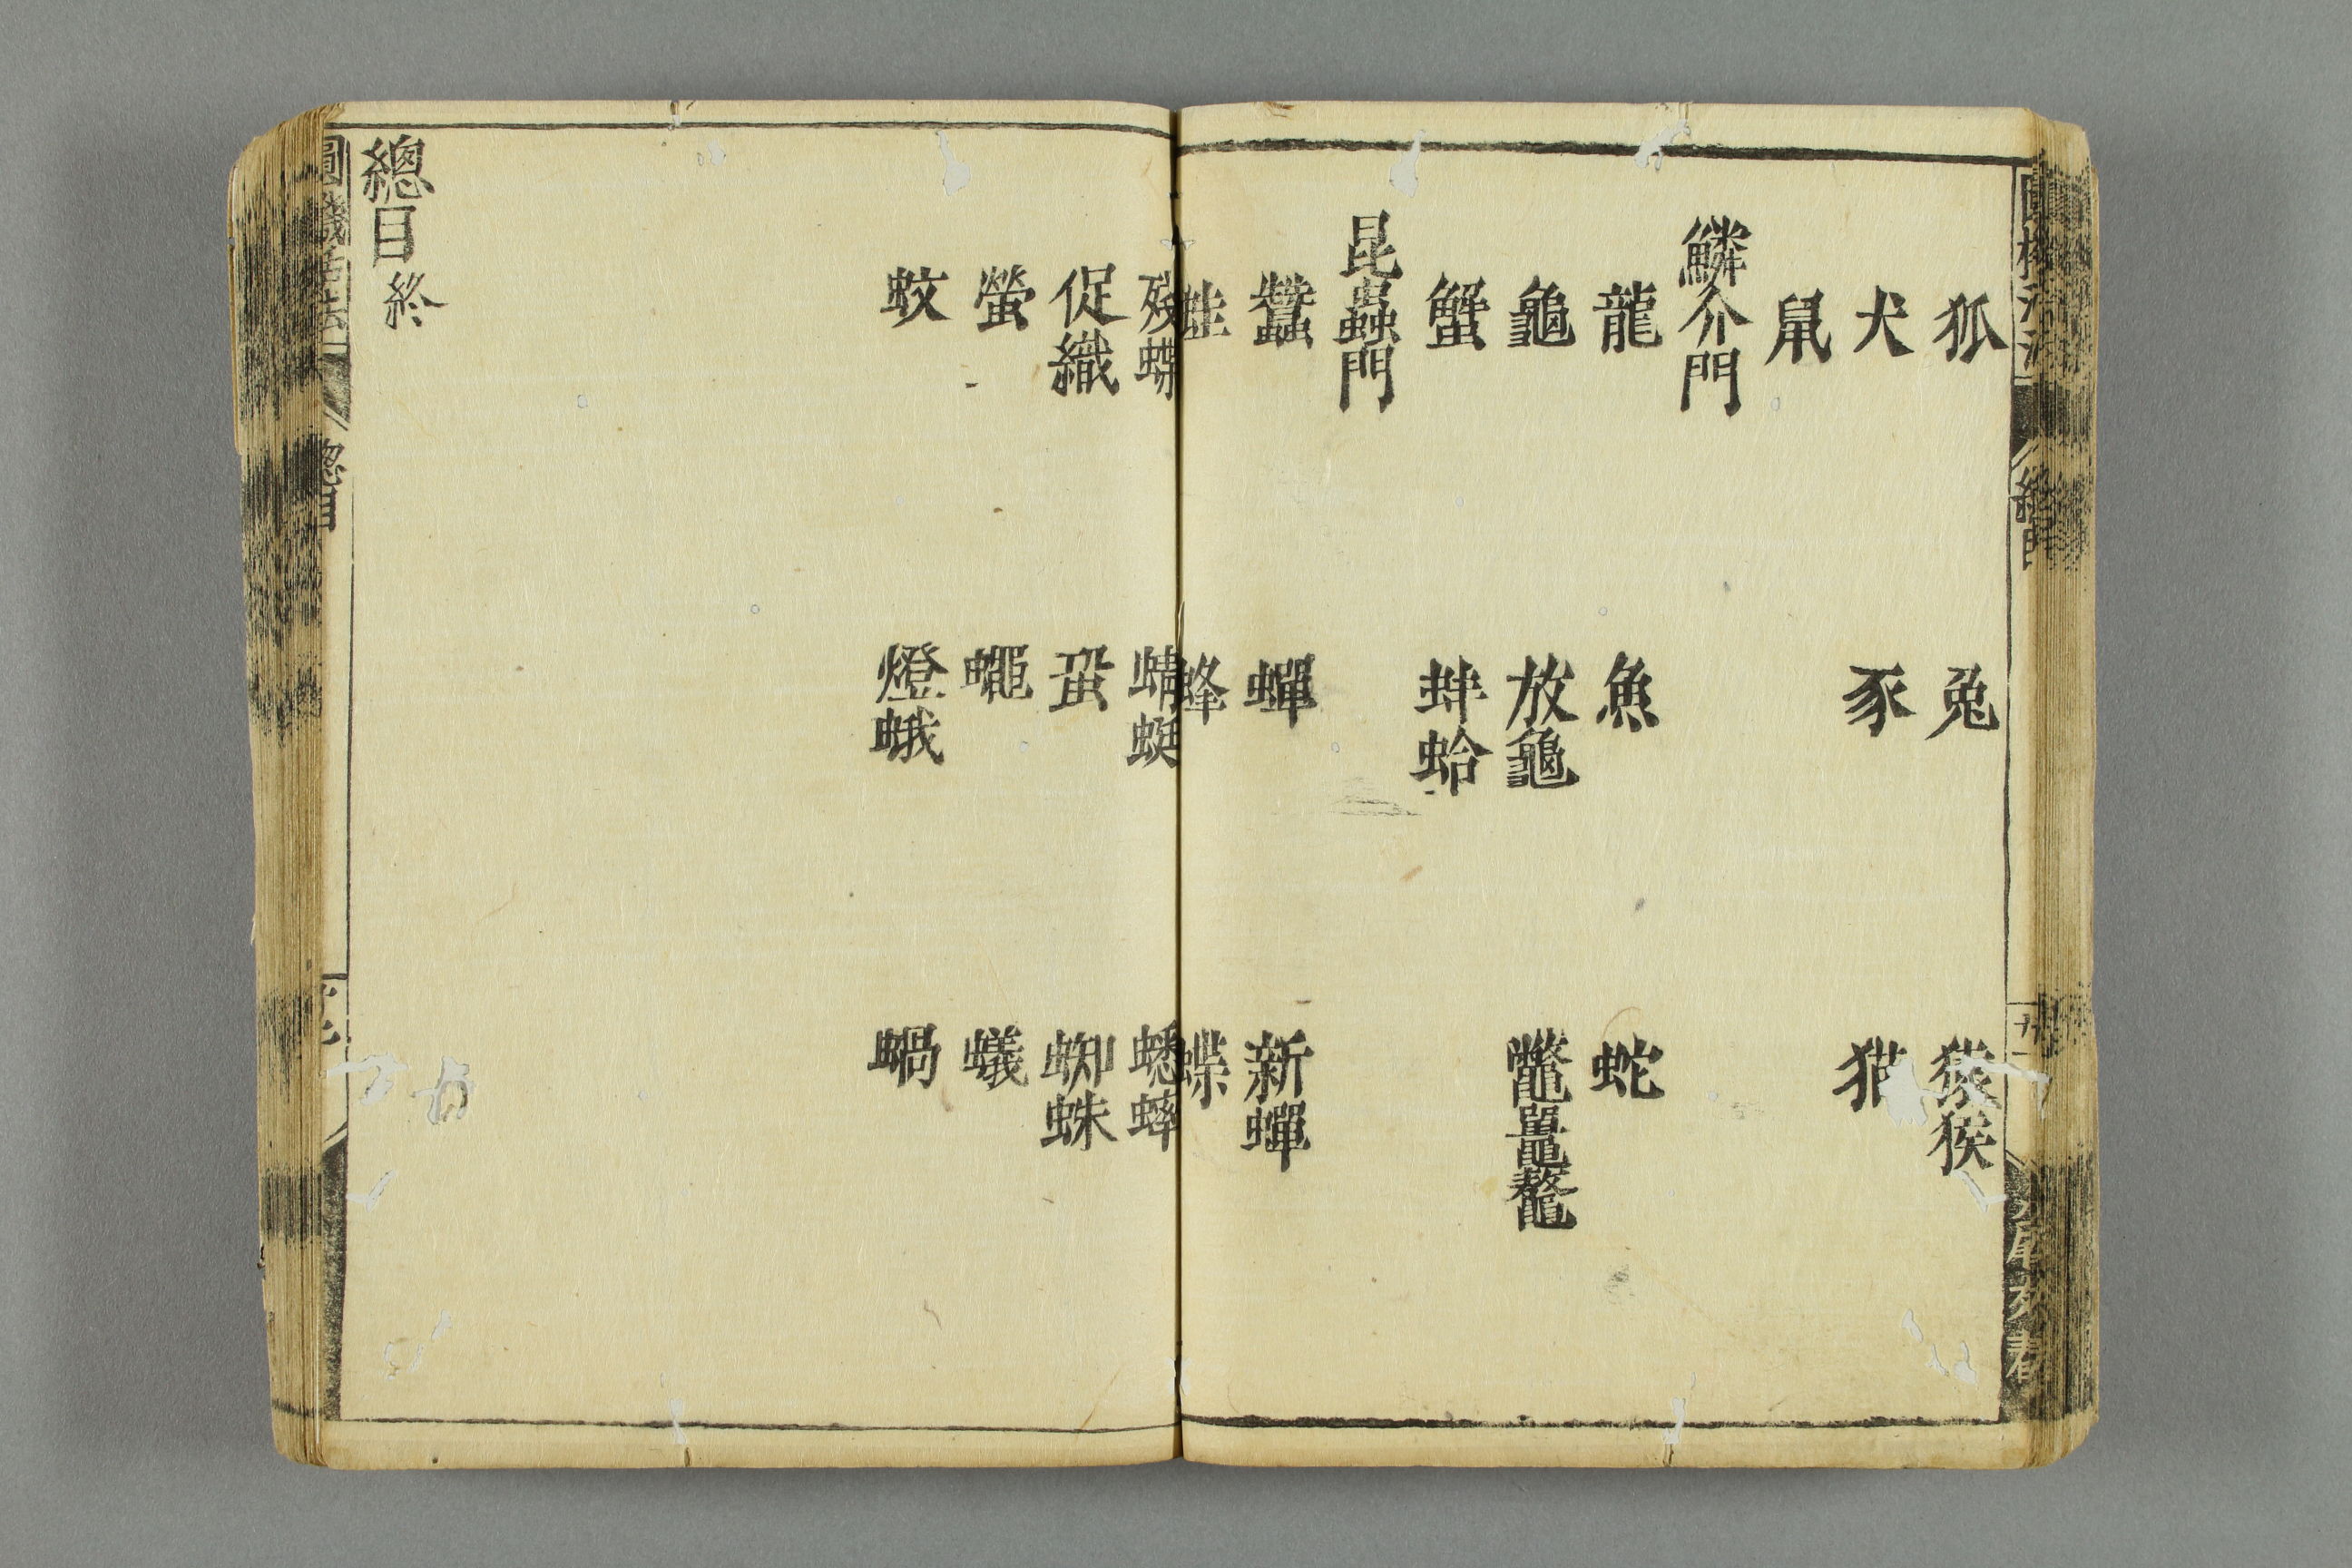 狐 兔 猨猴
犬 豕 猫
鼠
鱗介門
龍 魚 蛇
龜 放龜 鼈鼉鼇
蟹 蚌蛤
昆蟲門
蠶 蟬 新蟬
蛙 蜂 蝶
殘蝶 蜻蜓 蟋蟀
促織 蛩 蜘蛛
螢 蠅 蟻
蚊 燈蛾 蝸
總目終
圓機活法
總目